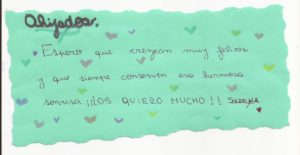 Ahijados.
* Espero que crezcan muy felices
y que siempre conserven esa hermosa
sonrisa ¡¡LOS QUIERO MUCHO!!